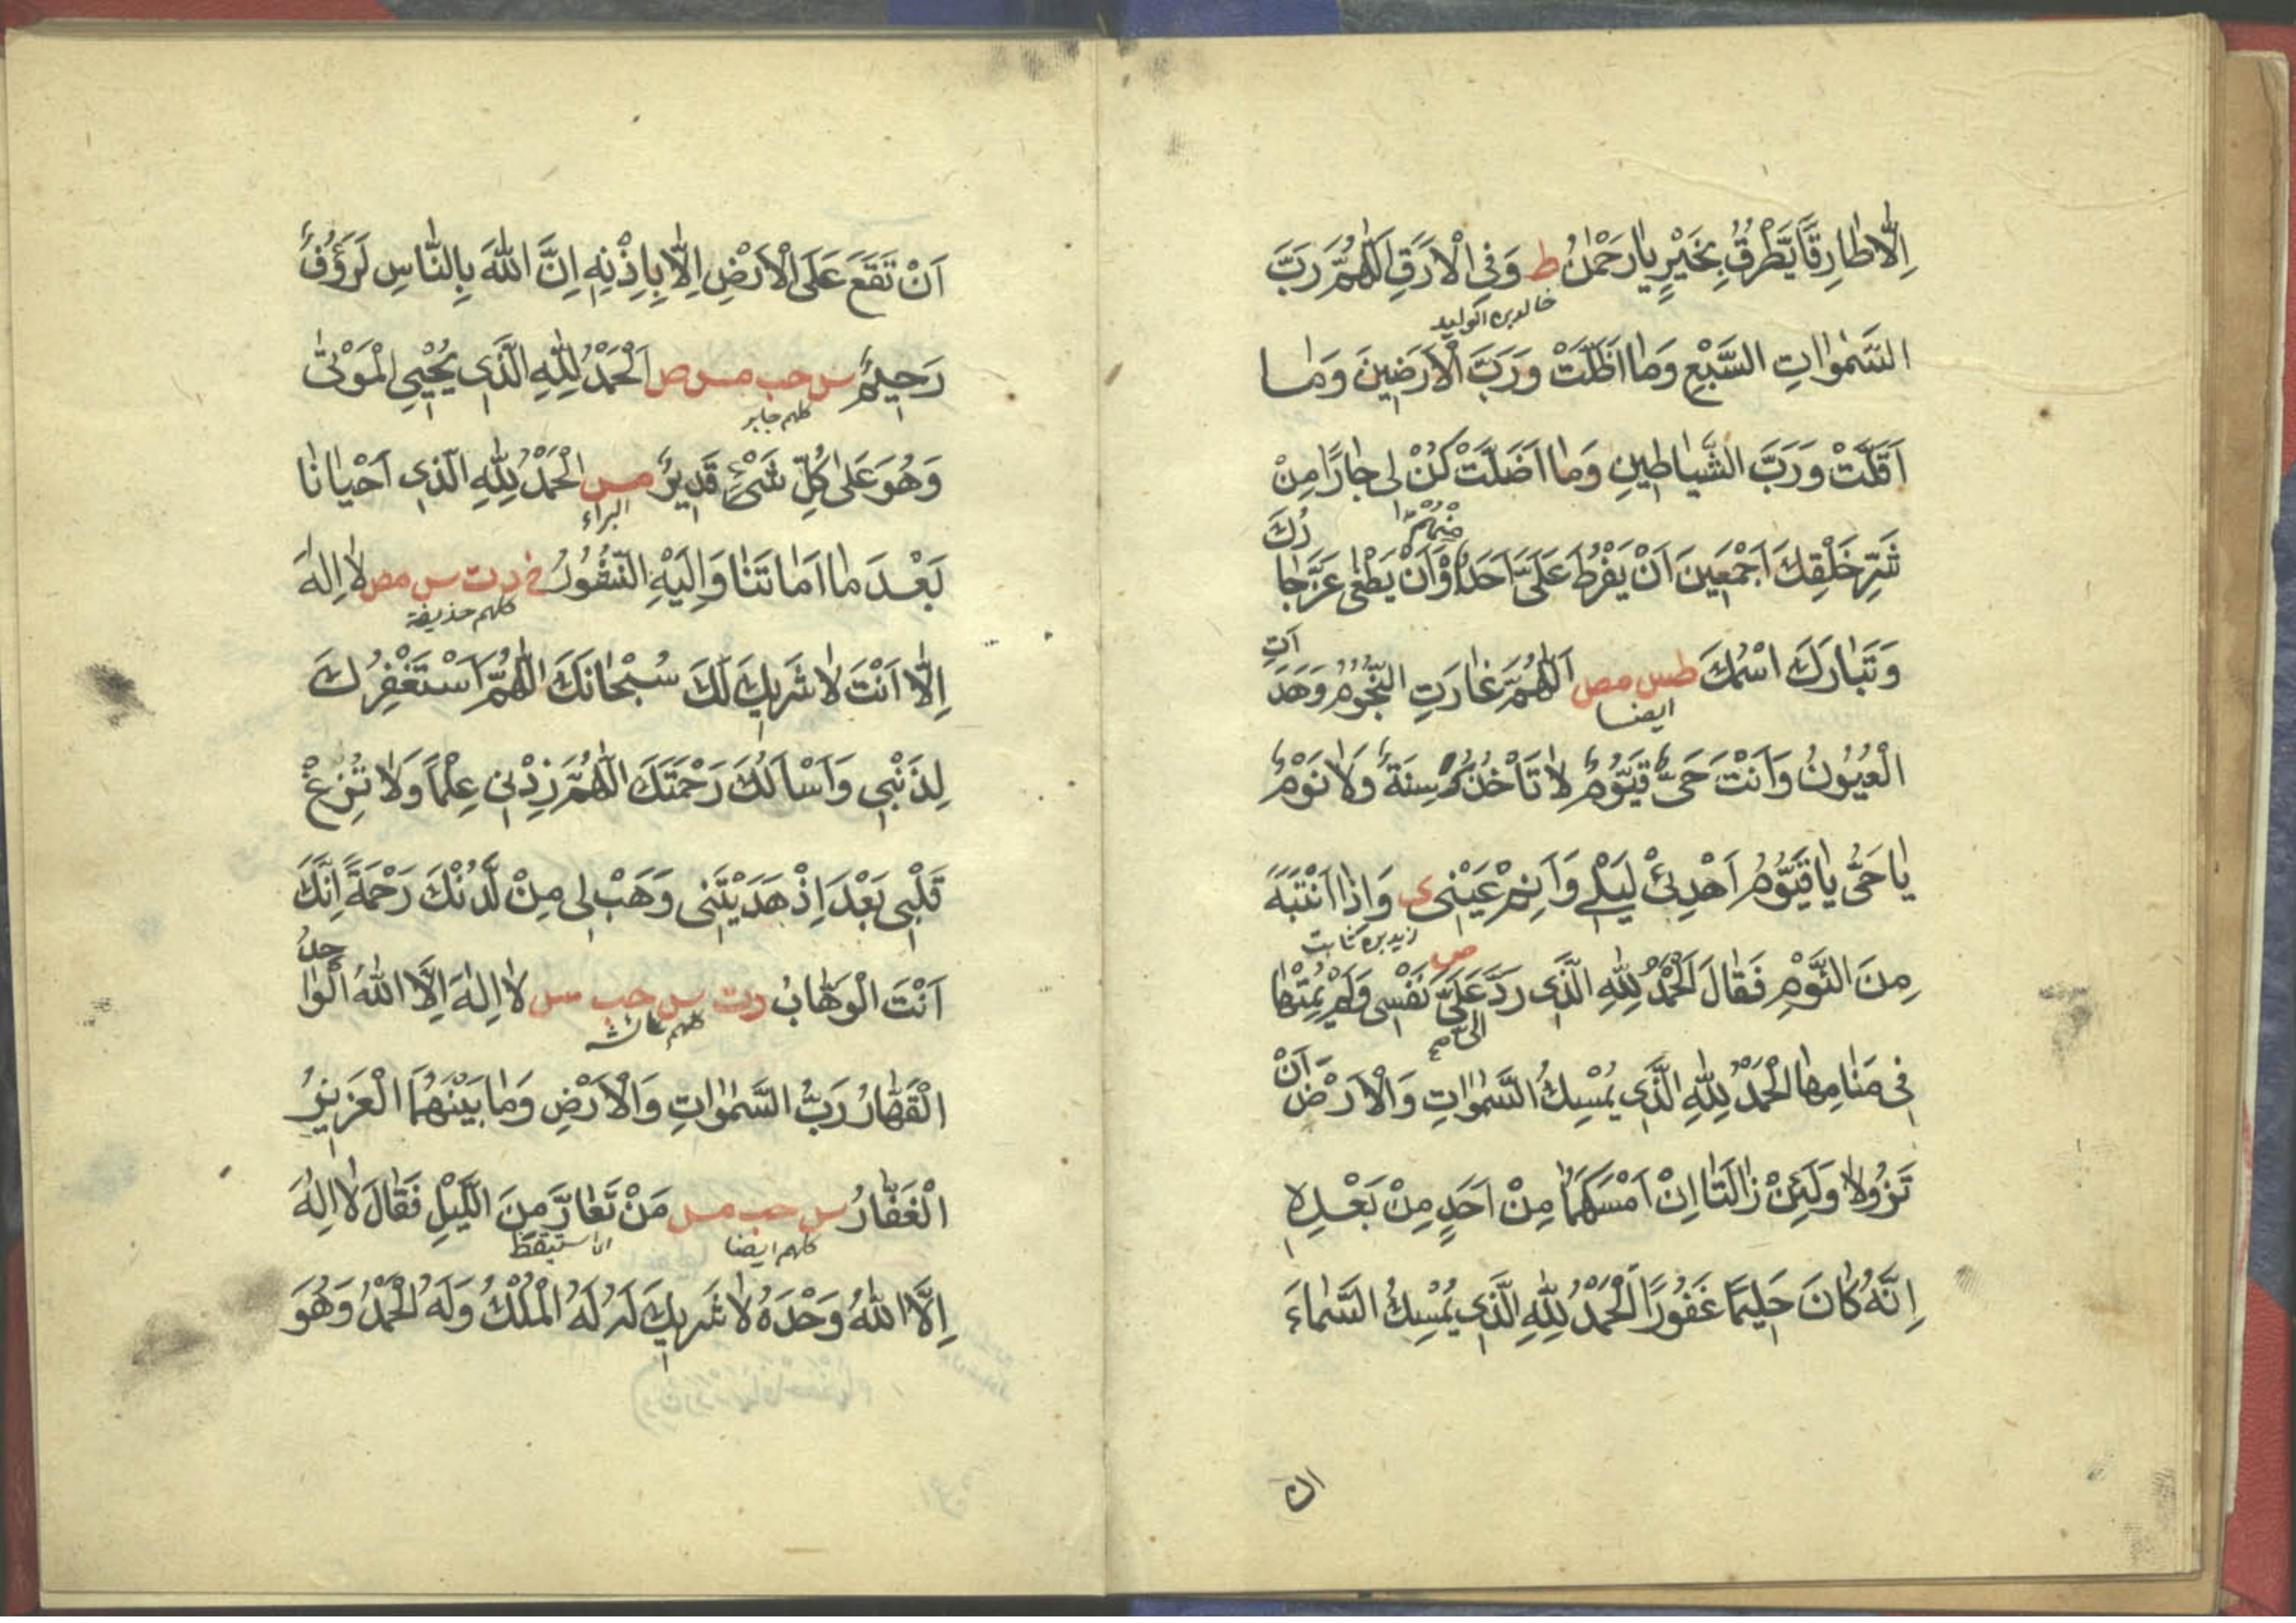 اِلَّا طَارِقًا يَّطْرُقُ بِخَيْرٍ يَا رَحْمٰنُ ط وَفِى الْاَرَقِ اَللّٰهُمَّ رَبَّ
خالد بن الوليد
السَّمٰوَاتِ السَّبْعِ وَمَا اَظَلَّتْ وَرَبَّ الْاَرَضِينَ وَمَا
اَقَلَّتْ وَرَبَّ الشَّيَاطِينِ وَمَا اَضَلَّتْ كُنْ لِى جَارًا مِنْ
مِنْهُمْ
شَرِّ خَلْقِكَ اَجْمَعِينَ اَنْ يَفْرُطَ عَلَىَّ اَحَدٌ اَوْ اَنْ يَطْغٰى عَزَّ جَارُكَ
وَتَبَارَكَ اسْمُكَ طس مص اَللّٰهُمَّ غَارَتِ النُّجُومُ وَهَدَاَتِ
ايضا
الْعُيُونُ وَاَنْتَ حَىٌّ قَيُّومٌ لَا تَاْخُذُكَ سِنَةٌ وَلَا نَوْمٌ
يَا حَىُّ يَا قَيُّومُ اَهْدِئْ لَيْلِى وَاَنِمْ عَيْنِى ى وَاِذَا انْتَبَهَ
زيد بن ثابت
مِنَ النَّوْمِ فَقَالَ اَلْحَمْدُ لِلّٰهِ الَّذِى رَدَّ عَلَىَّ نَفْسِى وَلَمْ يُمِتْهَا
فِى مَنَامِهَا الْحَمْدُ لِلّٰهِ الَّذِى يُمْسِكُ السَّمٰوَاتِ وَالْاَرْضَ اَنْ
تَزُولَا وَلَئِنْ زَالَتَا اِنْ اَمْسَكَهُمَا مِنْ اَحَدٍ مِنْ بَعْدِهِ
اِنَّهُ كَانَ حَلِيمًا غَفُورًا اَلْحَمْدُ لِلّٰهِ الَّذِى يُمْسِكُ السَّمَاءَ
ان
اَنْ تَقَعَ عَلَى الْاَرْضِ اِلَّا بِاِذْنِهِ اِنَّ اللّٰهَ بِالنَّاسِ لَرَؤُفٌ
رَحِيمٌ س حب مس ص اَلْحَمْدُ لِلّٰهِ الَّذِى يُحْيِى الْمَوْتٰى
كلهم جابر
وَهُوَ عَلٰى كُلِّ شَىْءٍ قَدِيرٌ مس الْحَمْدُ لِلّٰهِ الَّذِى اَحْيَانَا
البراء
بَعْدَ مَا اَمَاتَنَا وَاِلَيْهِ النُّشُورُ خ د ت س مص لَا اِلٰهَ
كلهم حذيفة
اِلَّا اَنْتَ لَا شَرِيكَ لَكَ سُبْحَانَكَ اللّٰهُمَّ اَسْتَغْفِرُكَ
لِذَنْبِى وَاَسْاَلُكَ رَحْمَتَكَ اللّٰهُمَّ زِدْنِى عِلْمًا وَلَا تُزِغْ
قَلْبِى بَعْدَ اِذْ هَدَيْتَنِى وَهَبْ لِى مِنْ لَّدُنْكَ رَحْمَةً اِنَّكَ
اَنْتَ الْوَهَّابُ د ت س حب مس لَا اِلٰهَ اِلَّا اللّٰهُ الْوَاحِدُ
كلهم عائشه
الْقَهَّارُ رَبُّ السَّمٰوَاتِ وَالْاَرْضِ وَمَا بَيْنَهُمَا الْعَزِيزُ
الْغَفَّارُ س حب مس مَنْ تَعَارَّ مِنَ الَّيْلِ فَقَالَ لَا اِلٰهَ
كلهم ايضا استيقظ
اِلَّا اللّٰهُ وَحْدَهُ لَا شَرِيكَ لَهُ لَهُ الْمُلْكُ وَلَهُ الْحَمْدُ وَهُوَ